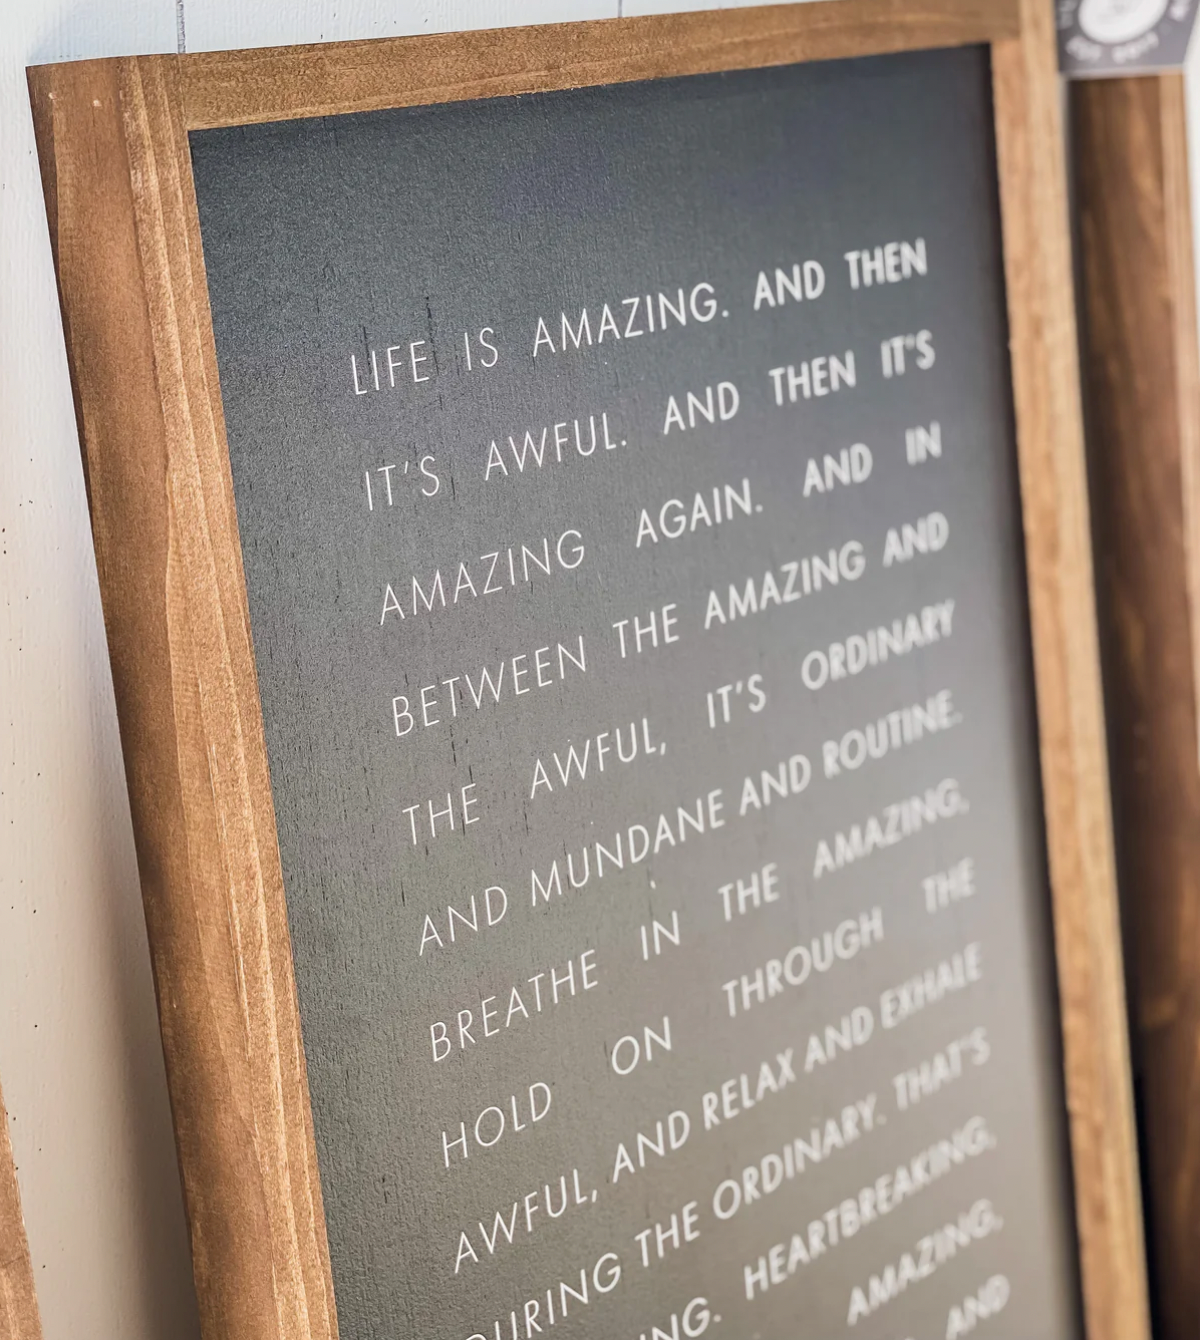 LIFE IS AMAZING. AND THEN
IT'S AWFUL. AND THEN IT'S
AMAZING AGAIN. AND IN
BETWEEN THE AMAZING AND
THE AWFUL, IT'S ORDINARY
AND MUNDANE AND ROUTINE.
BREATHE IN THE AMAZING,
HOLD ON THROUGH THE
AWFUL, AND RELAX AND EXHALE
DURING THE ORDINARY. THAT'S
HEARTBREAKING,
AMAZING,
AND